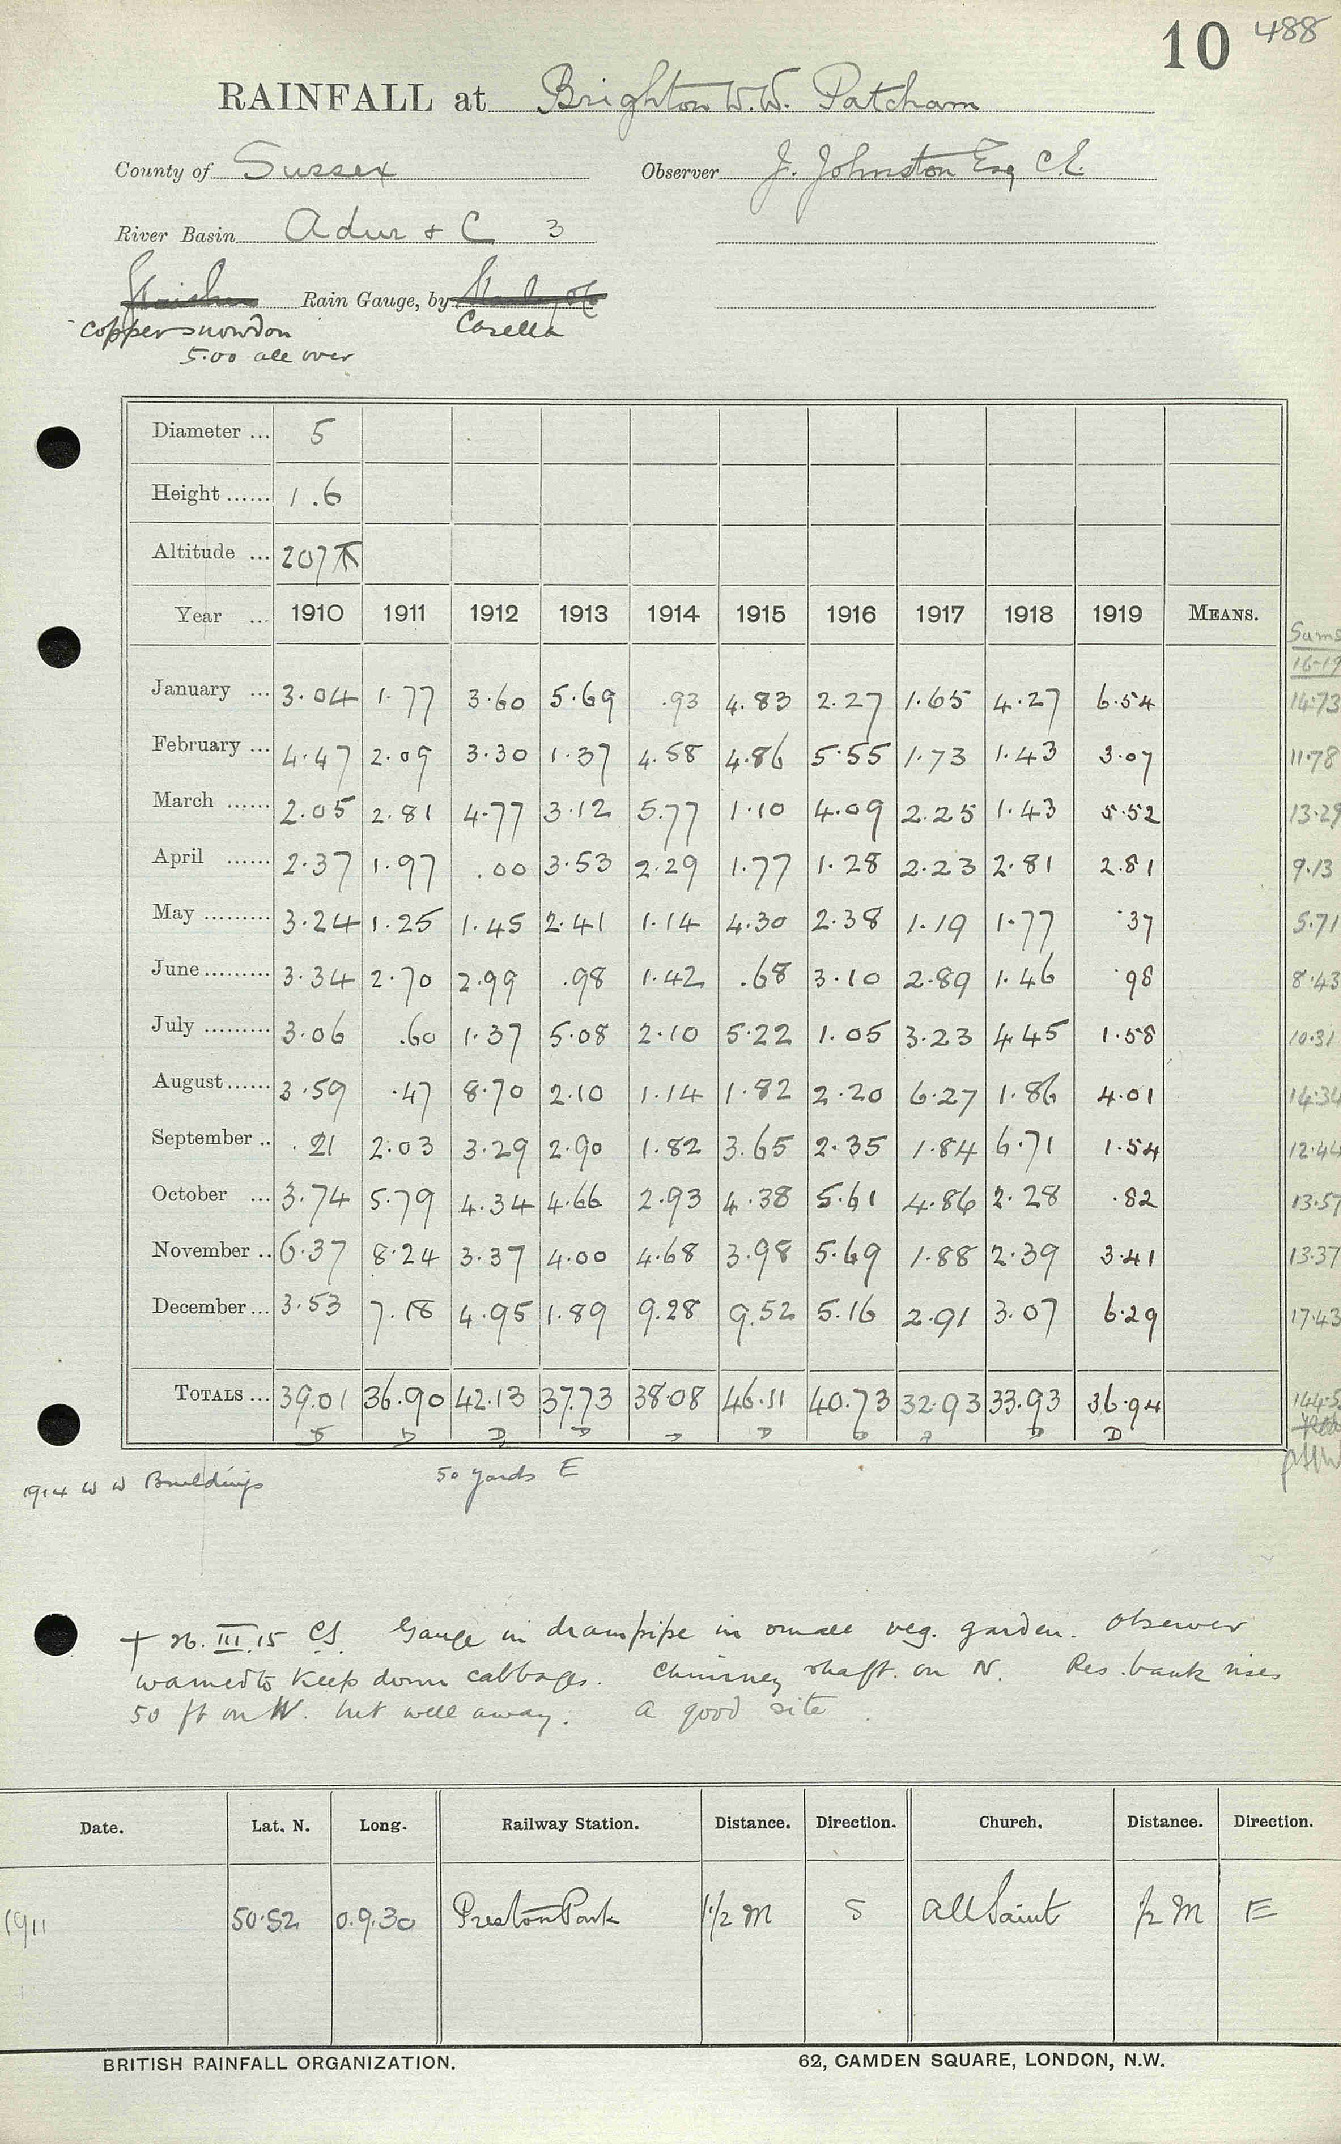 10 488
RAINFALL at Brighton W.W. Patcham
County of Sussex Observer J. Johnston Esq C.E.
River Basin Adur & C 3
Rain Gauge, by
Copper Snowdon Casella
5.00 all over
Diameter ... 5
Height ...... 1.6
Altitude ... 207
Year ... 1910 1911 1912 1913 1914 1915 1916 1917 1918 1919 MEANS. Sums
16-19
January ... 3.04 1.77 3.60 5.69 .93 4.83 2.27 1.65 4.27 6.54 14.73
February ... 4.47 2.09 3.30 1.37 4.58 4.86 5.55 1.73 1.43 3.07 11.78
March ...... 2.05 2.81 4.77 3.12 5.77 1.10 4.09 2.25 1.43 5.52 13.29
April ...... 2.37 1.97 .00 3.53 2.29 1.77 1.28 2.23 2.81 2.81 9.13
May ......... 3.24 1.25 1.45 2.41 1.14 4.30 2.38 1.19 1.77 .37 5.71
June ......... 3.34 2.70 2.99 .98 1.42 .68 3.10 2.89 1.46 .98 8.43
July ......... 3.06 .60 1.37 5.08 2.10 5.22 1.05 3.23 4.45 1.58 10.31
August ...... 3.59 .47 8.70 2.10 1.14 1.82 2.20 6.27 1.86 4.01 14.34
September .. .21 2.03 3.29 2.90 1.82 3.65 2.35 1.84 6.71 1.54 12.44
October ... 3.74 5.79 4.34 4.66 2.93 4.38 5.61 4.86 2.28 .82 13.57
November .. 6.37 8.24 3.37 4.00 4.68 3.98 5.69 1.88 2.39 3.41 13.37
December ... 3.53 7.18 4.95 1.89 9.28 9.52 5.16 2.91 3.07 6.29 17.43
TOTALS ... 39.01 36.90 42.13 37.73 38.08 46.11 40.73 32.93 33.93 36.94 144.5
1914 W W Buildings 50 yards E
+ 26.III.15 CS. Gauge in drainpipe in small veg. garden. Observer
warned to keep down cabbages. Chimney shaft on N. Res. bank rises
50 ft on W. but well away. A good site
Date. Lat. N. Long. Railway Station. Distance. Direction. Church. Distance. Direction.
1911 50.52 0.9.30 Preston Park 1 1/2 M S All Saint 1/2 M E
BRITISH RAINFALL ORGANIZATION. 62, CAMDEN SQUARE, LONDON, N.W.